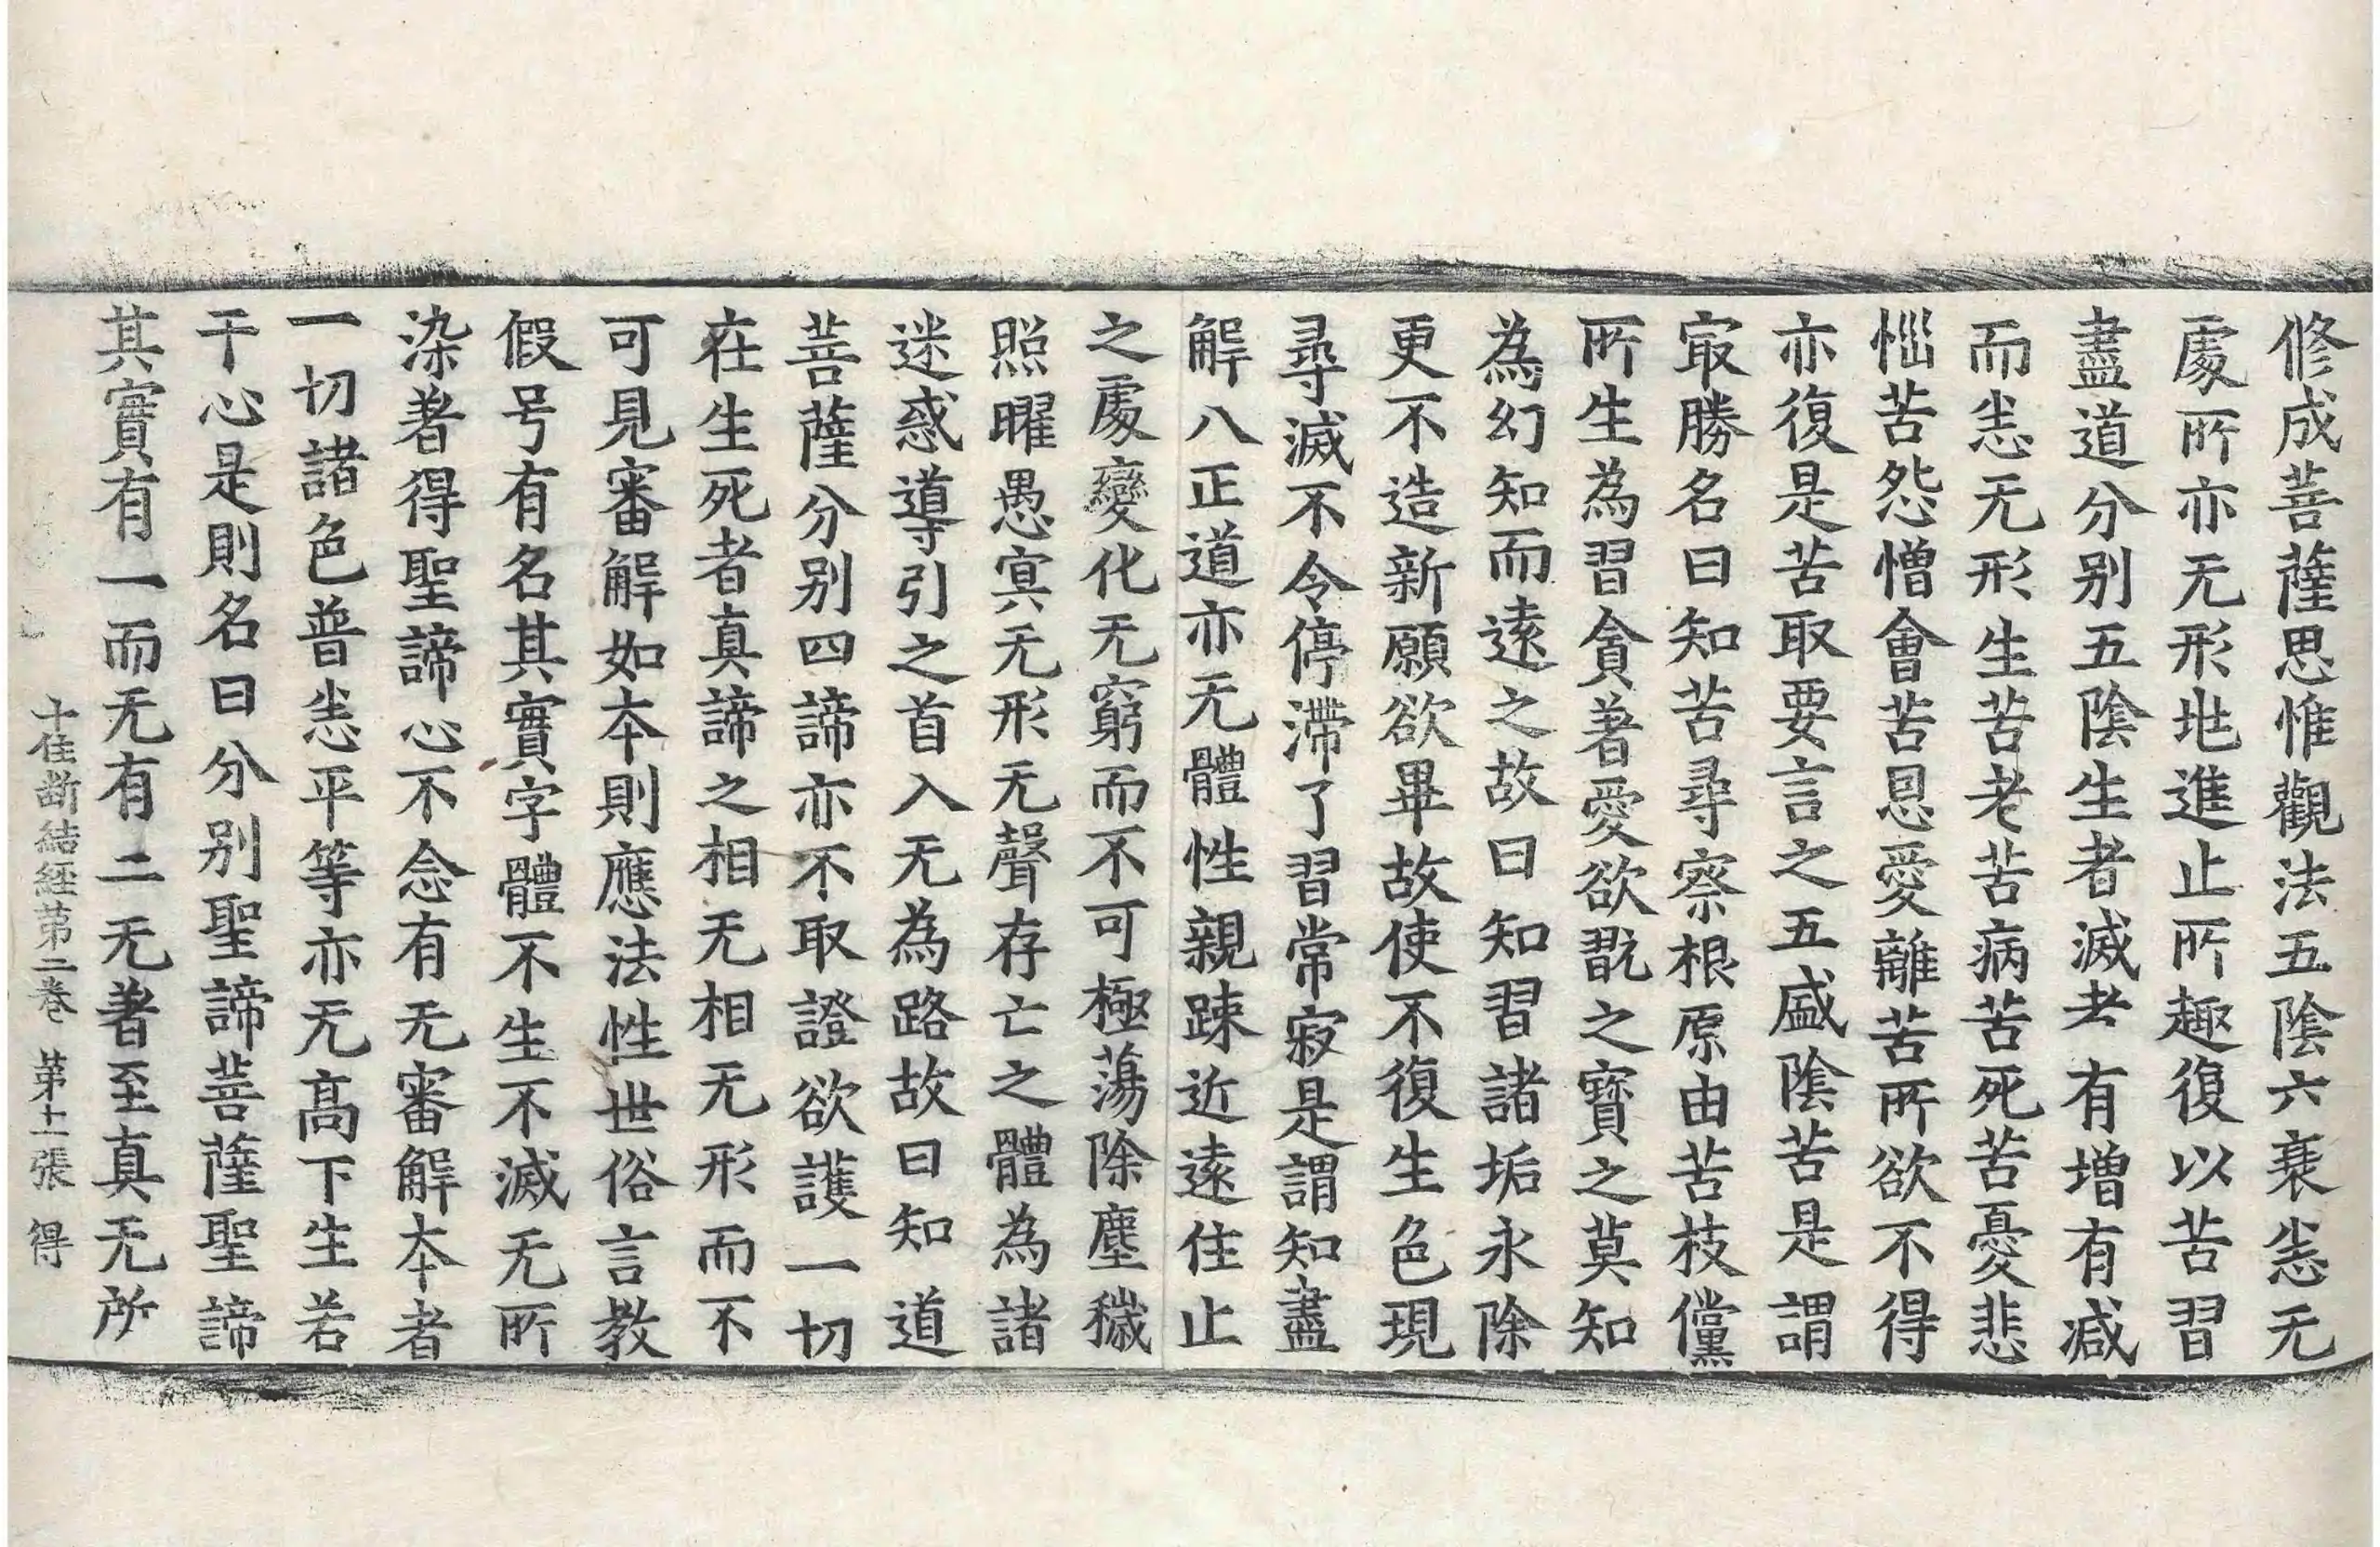 修成菩薩思惟觀法五陰六衰恙无
處所亦无形地進止所趣復以苦習
盡道分别五陰生者滅者有增有減
而恙无形生苦老苦病苦死苦憂悲
惱苦怨憎會苦恩愛離苦所欲不得
亦復是苦取要言之五盛陰苦是謂
㝡勝名曰知苦尋察根原由苦枝儻
所生為習貪著愛欲翫之寶之莫知
為幻知而遠之故曰知習諸垢永除
更不造新願欲畢故使不復生色現
尋滅不令停滯了習常寂是謂知盡
解八正道亦无體性親踈近遠住止
之處變化无窮而不可極蕩除塵穢
照曜愚冥无形无聲存亡之體為諸
迷惑導引之首入无為路故曰知道
菩薩分别四諦亦不取證欲護一切
在生死者真諦之相无相无形而不
可見審解如本則應法性世俗言教
假号有名其實字體不生不滅无所
染著得聖諦心不念有无審解本者
一切諸色普恙平等亦无高下生若
干心是則名曰分别聖諦菩薩聖諦
其實有一而无有二无著至真无所
十住断結經第二卷 第十二張 得